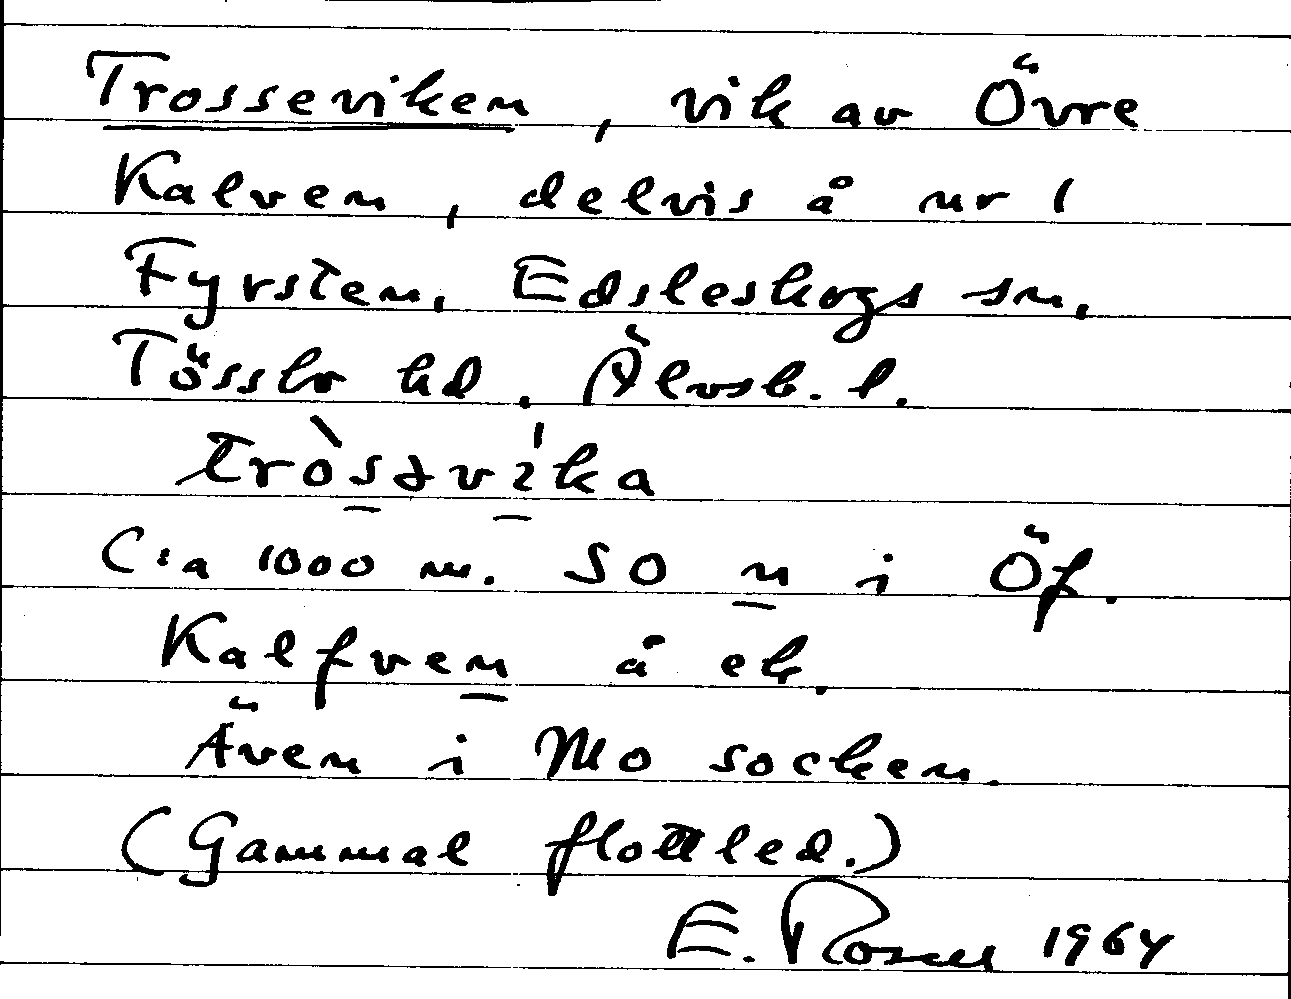 Trosseviken, vik av Övre
Kalven, delvis å nr 1
Fyrsten, Edsleskogs sn,
Tössbo hd. Älvsb. l.
tròssvíka
C:a 1000 m. SO n i Öf.
Kalfven å ek.
Även i Mo socken.
(Gammal flottled.)
E. Rosell 1964